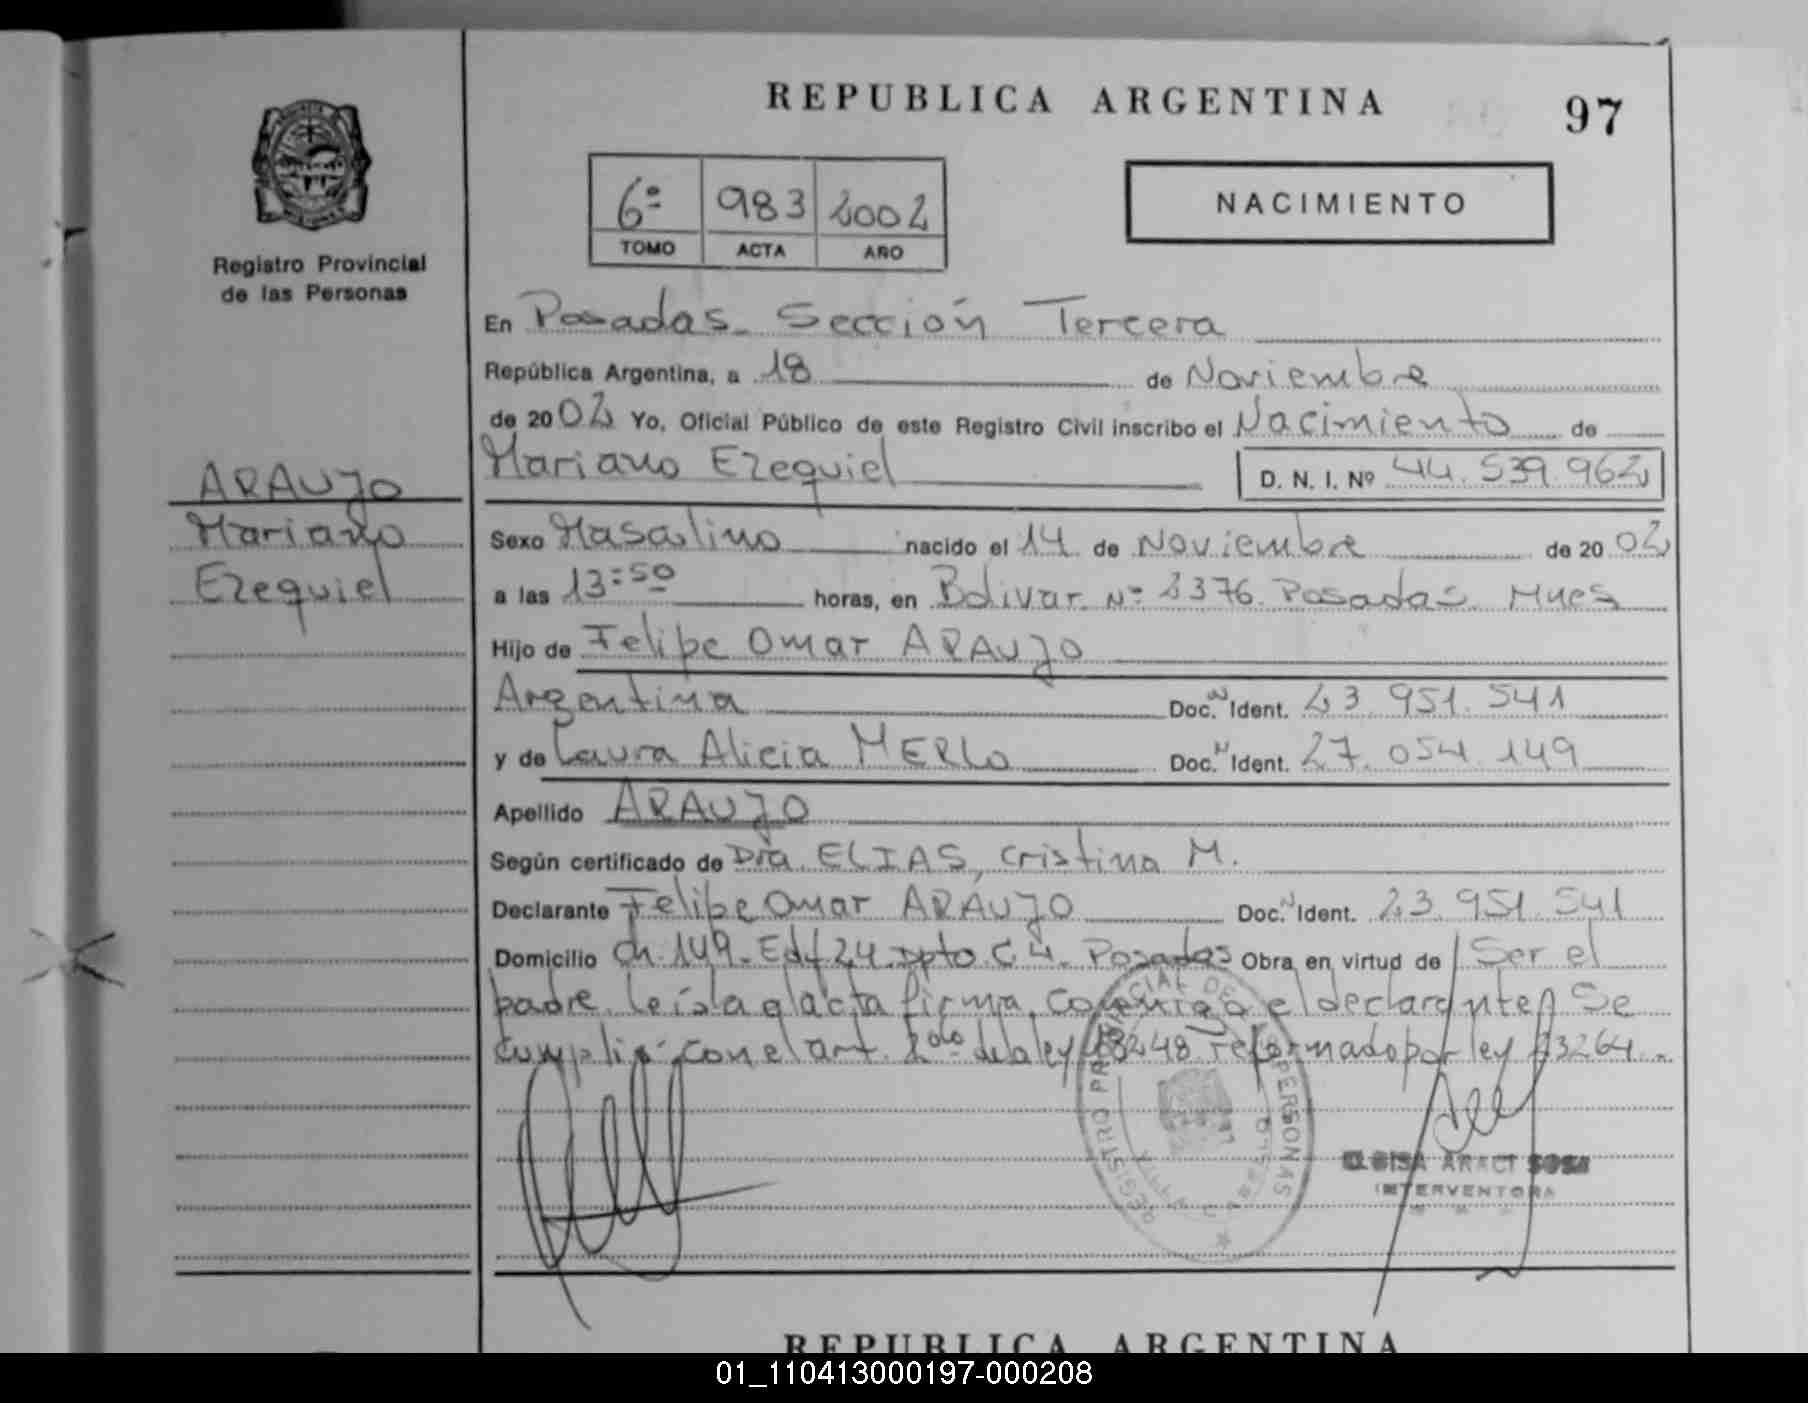 REPUBLICA ARGENTINA
97
6º 983 2002
TOMO ACTA AÑO
NACIMIENTO
Registro Provincial
de las Personas
En Posadas. Sección Tercera
República Argentina, a 18 de Noviembre
de 2002 Yo, Oficial Público de este Registro Civil inscribo el Nacimiento de
Mariano Ezequiel D. N. I. Nº 44.539.962
ARAUJO
Mariano
Ezequiel
Sexo Masculino nacido el 14 de Noviembre de 2002
a las 13:50 horas, en Bolivar Nº 2376. Posadas. Mnes
Hijo de Felipe Omar ARAUJO
Argentina Doc. N Ident. 23.951.541
y de Laura Alicia MERLO Doc. N Ident. 27.054.149
Apellido ARAUJO
Según certificado de Dra. ELIAS, Cristina M.
Declarante Felipe Omar ARAUJO Doc. N Ident. 23.951.541
Domicilio Ch. 149. Edf 24. Dpto C 4. Posadas Obra en virtud de Ser el
padre. leísla el acta firma conmigo el declarante. Se
cumplió con el art. 2do de la ley 18248 reformado por ley 23264.-
REGISTRO PROVINCIAL DE LAS PERSONAS
ARACI SOSA
INTERVENTORA
REPUBLICA ARGENTINA
01_110413000197-000208